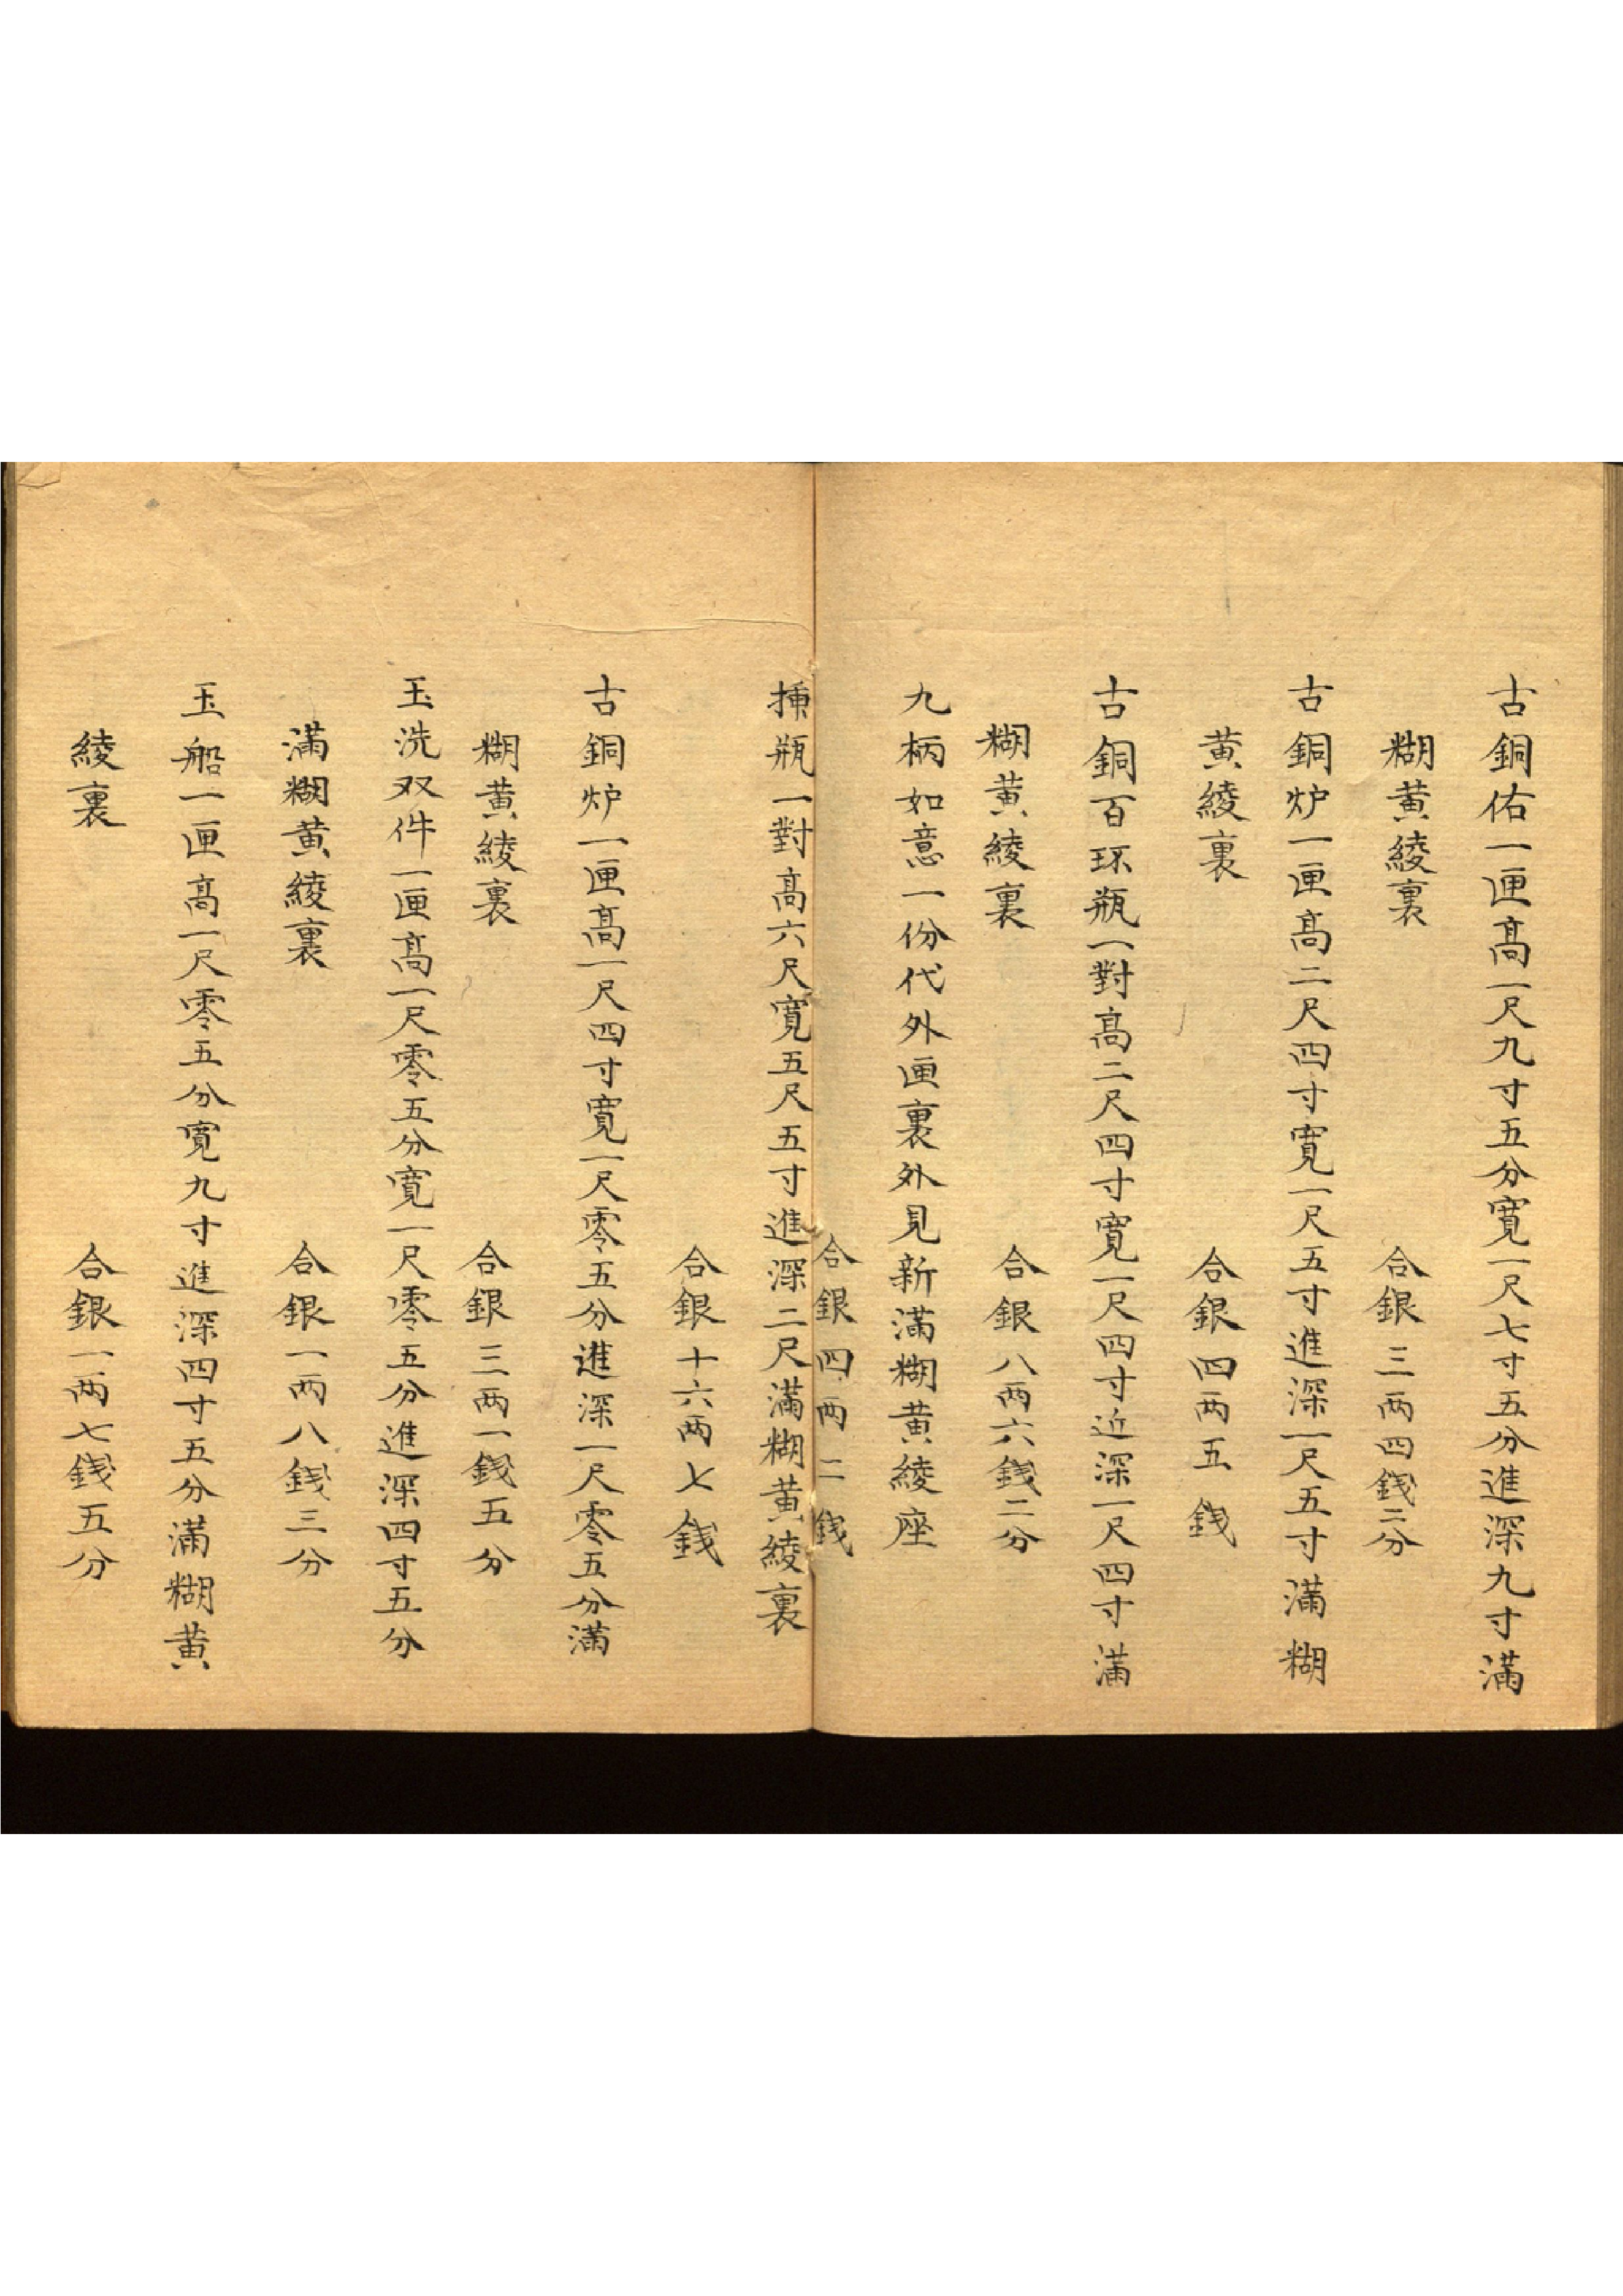 古銅佑一匣高一尺九寸五分寬一尺七寸五分進深九寸滿
糊黄綾裏　合銀三両四錢二分
古銅炉一匣高二尺四寸寬一尺五寸進深一尺五寸滿糊
黄綾裏　合銀四両五錢
古銅百环瓶一對高二尺四寸寬一尺四寸近深一尺四寸滿
糊黄綾裏　合銀八両六錢二分
九柄如意一份代外匣裏外見新滿糊黄綾座
合銀四両二錢
揷瓶一對高六尺寬五尺五寸進深二尺滿糊黄綾裏
合銀十六両七錢
古銅炉一匣高一尺四寸寬一尺零五分進深一尺零五分滿
糊黄綾裏　合銀三両一錢五分
玉洗双件一匣高一尺零五分寬一尺零五分進深四寸五分
滿糊黄綾裏　合銀一両八錢三分
玉船一匣高一尺零五分寬九寸進深四寸五分滿糊黄
綾裏　合銀一両七錢五分